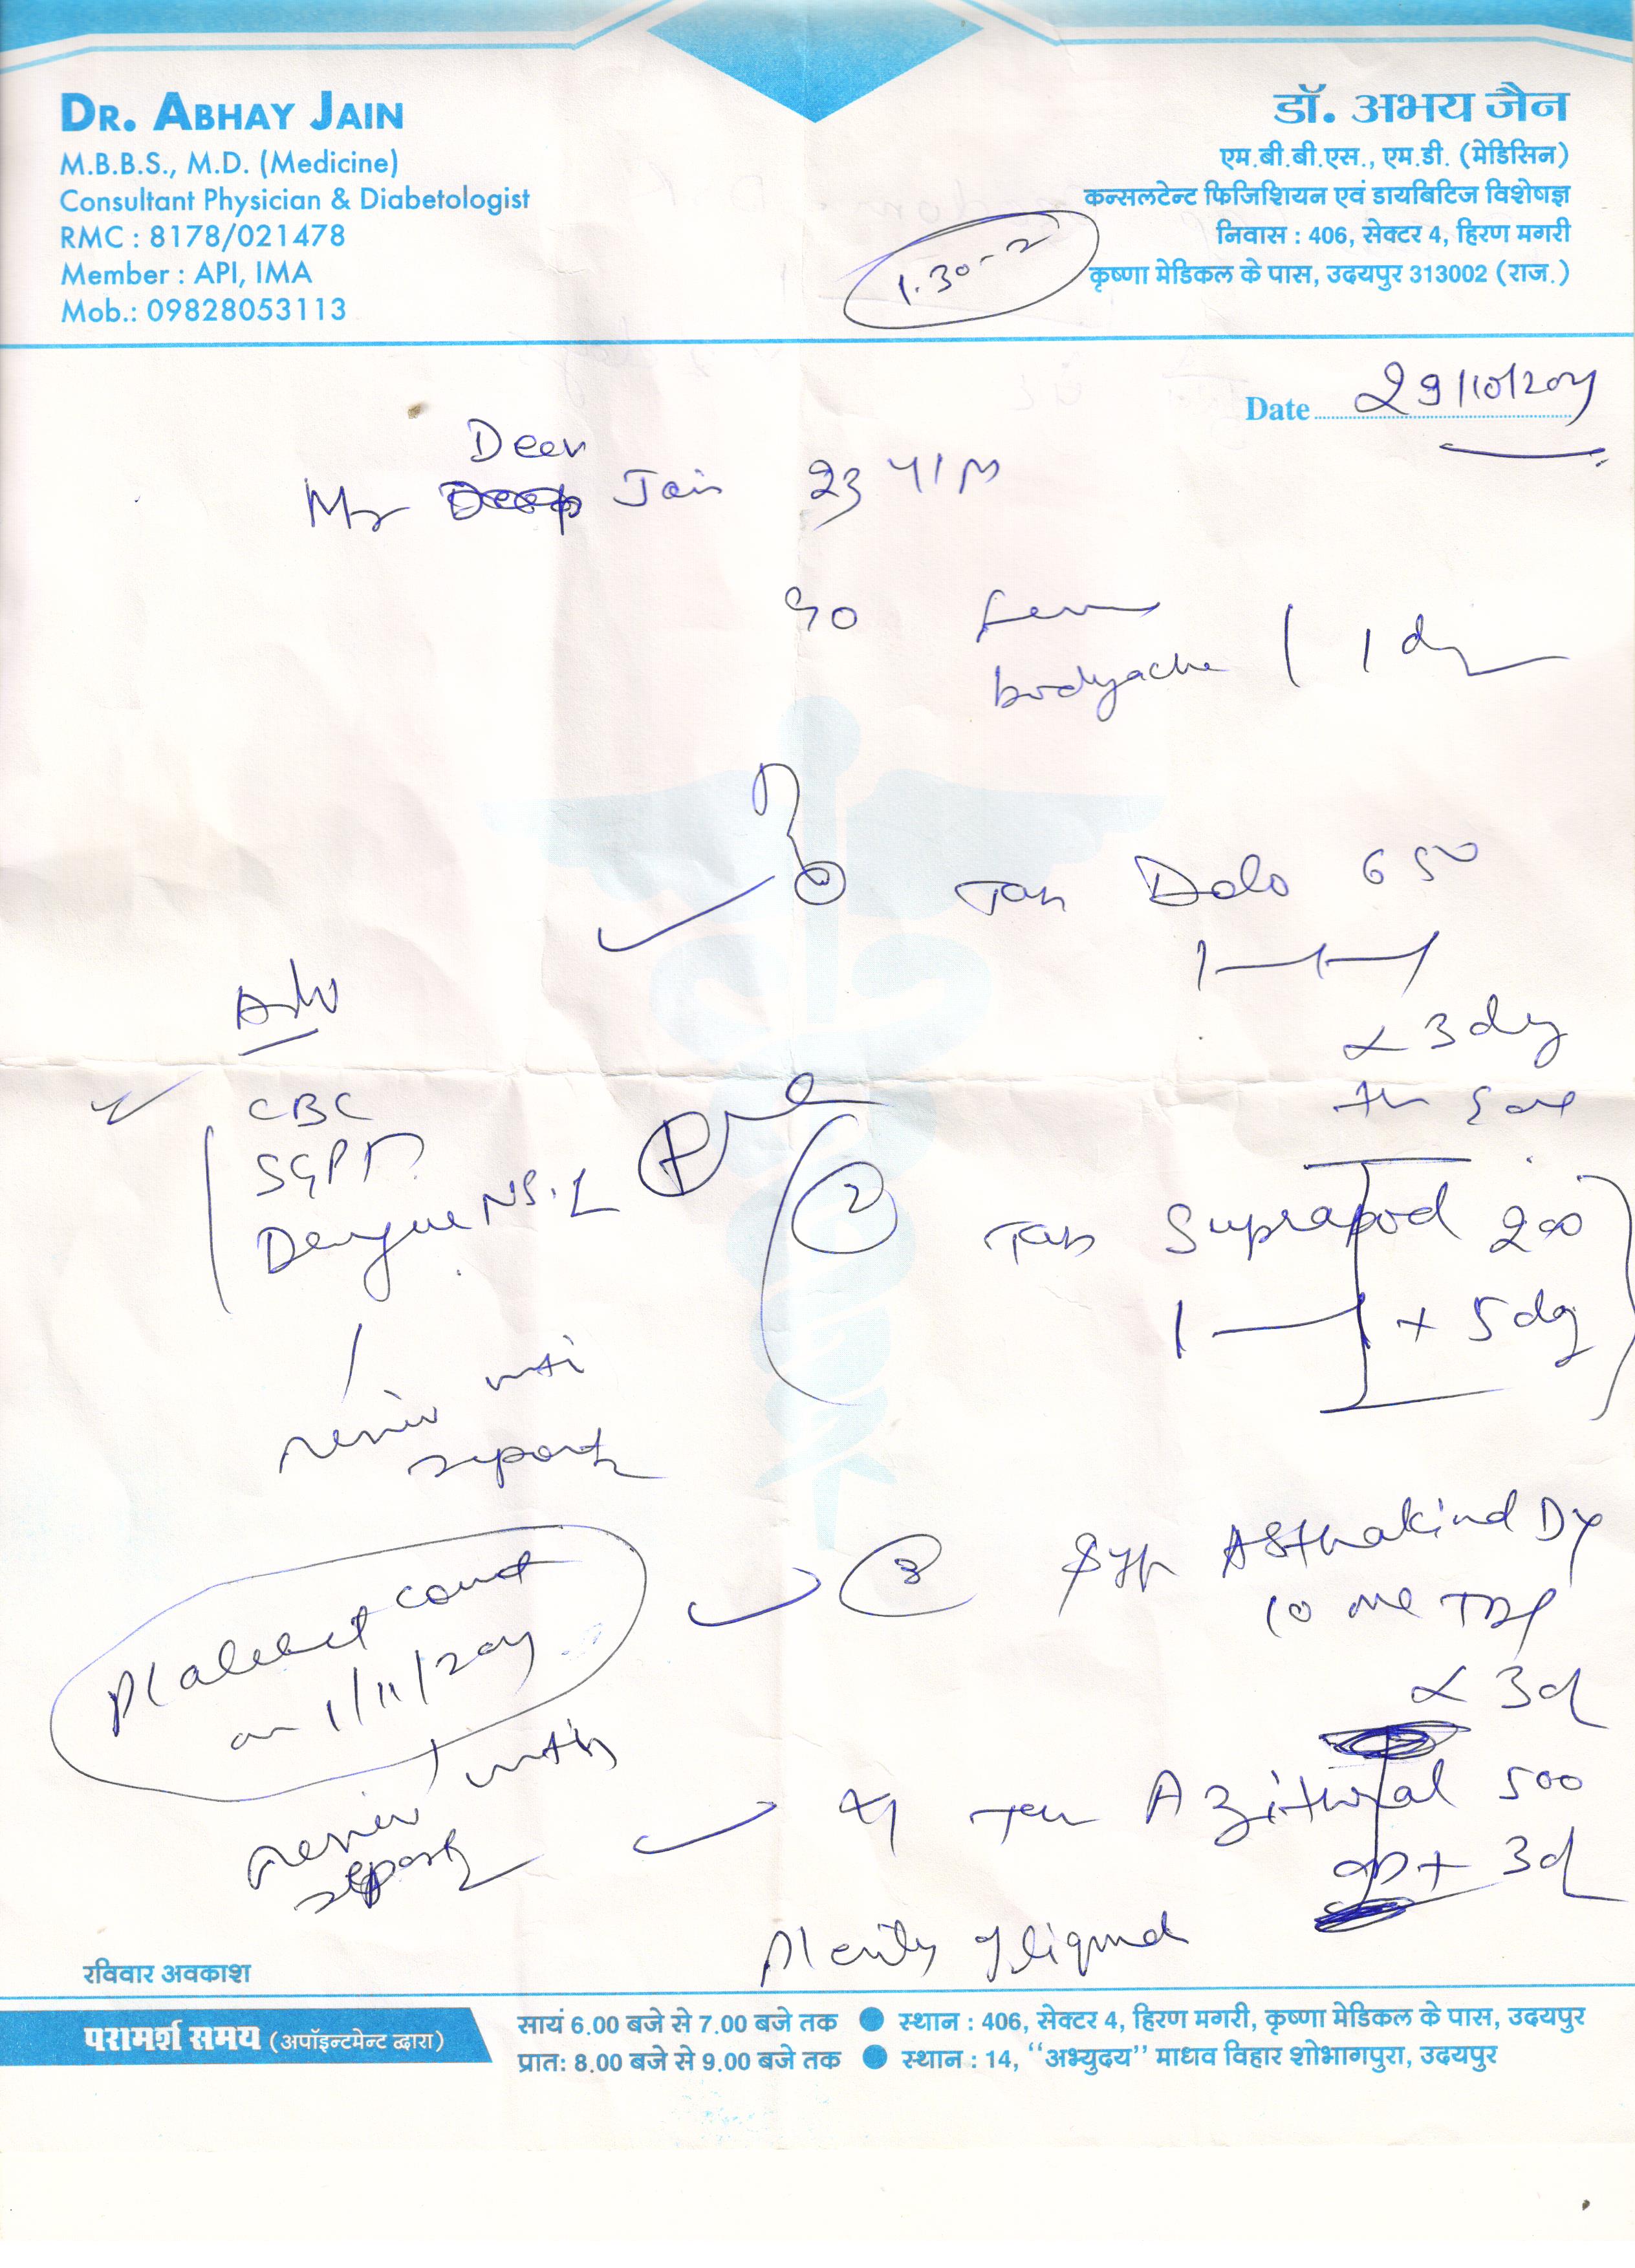 DR. ABHAY JAIN
M.B.B.S., M.D. (Medicine)
Consultant Physician & Diabetologist
RMC : 8178/021478
Member : API, IMA
Mob.: 09828053113
डॉ. अभय जैन
एम.बी.बी.एस., एम.डी. (मेडिसिन)
कन्सलटेन्ट फिजिशियन एवं डायबिटिज विशेषज्ञ
निवास : 406, सेक्टर 4, हिरण मगरी
कृष्णा मेडिकल के पास, उदयपुर 313002 (राज.)
1.30-2
Date 29/10/
Mr Jain 23 Y/M
fever
bodyache / 1 day
① Tab Dolo 650
1—1—1
x 3 day
Adv
CBC
SGPT
Dengue NS-1
review with
reports
② Tab 200
1—1 x 5 day
③ Syp Asthakind Dx
10 ml TDS
x 3d
Platelet count
on 1/11/
review with
reports
4 Tab Azithral 500
OD x 3d
Plenty of liquid
रविवार अवकाश
परामर्श समय (अपॉइन्टमेन्ट द्वारा)
सायं 6.00 बजे से 7.00 बजे तक ● स्थान : 406, सेक्टर 4, हिरण मगरी, कृष्णा मेडिकल के पास, उदयपुर
प्रात: 8.00 बजे से 9.00 बजे तक ● स्थान : 14, ‘‘अभ्युदय’’ माधव विहार शोभागपुरा, उदयपुर